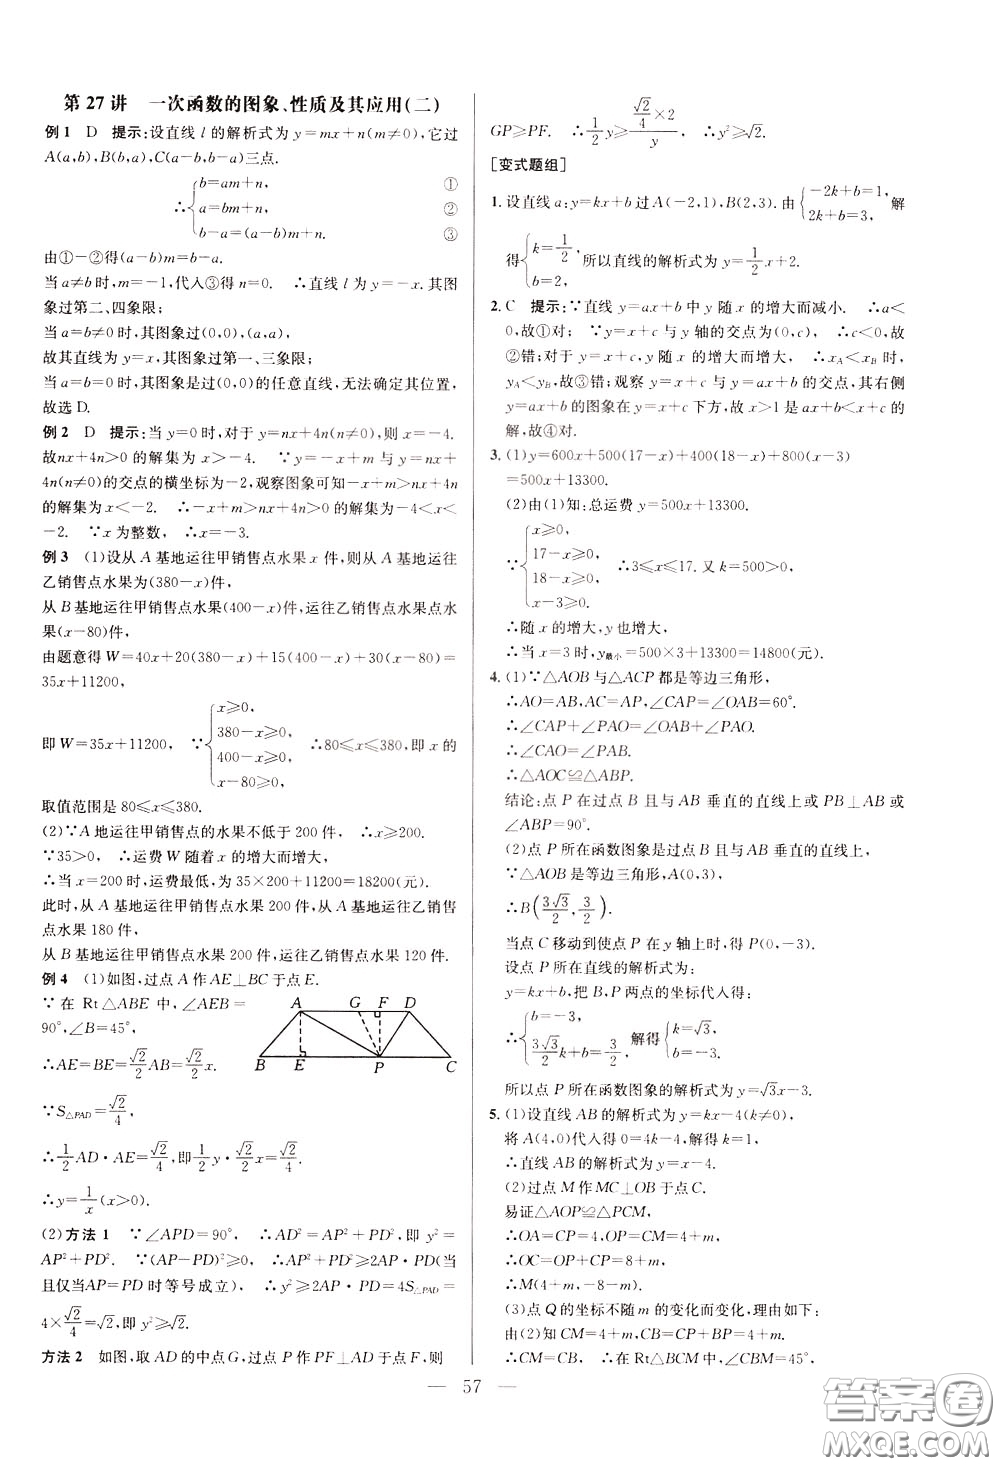 第27讲 一次函数的图象、性质及其应用(二)
例1 D 提示:设直线l的解析式为y=mx+n(m≠0),它过
A(a,b),B(b,a),C(a-b,b-a)三点.
∴{b=am+n, ①
a=bm+n, ②
b-a=(a-b)m+n. ③
由①-②得(a-b)m=b-a.
当a≠b时,m=-1,代入③得n=0. ∴直线l为y=-x.其图
象过第二、四象限;
当a=b≠0时,其图象过(0,0),(a,a),
故其直线为y=x,其图象过第一、三象限;
当a=b=0时,其图象是过(0,0)的任意直线,无法确定其位置,
故选D.
例2 D 提示:当y=0时,对于y=nx+4n(n≠0),则x=-4.
故nx+4n>0的解集为x>-4. ∵y=-x+m与y=nx+
4n(n≠0)的交点的横坐标为-2,观察图象可知-x+m>nx+4n
的解集为x<-2. ∴-x+m>nx+4n>0的解集为-4<x<
-2. ∵x为整数, ∴x=-3.
例3 (1)设从A基地运往甲销售点水果x件,则从A基地运往
乙销售点水果为(380-x)件,
从B基地运往甲销售点水果(400-x)件,运往乙销售点水果点水
果(x-80)件,
由题意得W=40x+20(380-x)+15(400-x)+30(x-80)=
35x+11200,
即W=35x+11200, ∵{x≥0,
380-x≥0,
400-x≥0,
x-80≥0, ∴80≤x≤380,即x的
取值范围是80≤x≤380.
(2)∵A地运往甲销售点的水果不低于200件, ∴x≥200.
∵35>0, ∴运费W随着x的增大而增大,
∴当x=200时,运费最低,为35×200+11200=18200(元).
此时,从A基地运往甲销售点水果200件,从A基地运往乙销售
点水果180件,
从B基地运往甲销售点水果200件,运往乙销售点水果120件.
例4 (1)如图,过点A作AE⊥BC于点E.
∵在Rt△ABE中,∠AEB=
90°,∠B=45°,
∴AE=BE=√2/2AB=√2/2x.
∵S△PAD=√2/4,
∴1/2AD·AE=√2/4,即1/2y·√2/2x=√2/4.
∴y=1/x(x>0).
A G F D
B E P C
(2)方法1 ∵∠APD=90°, ∴AD²=AP²+PD²,即y²=
AP²+PD². ∵(AP-PD)²≥0, ∴AP²+PD²≥2AP·PD(当
且仅当AP=PD时等号成立), ∴y²≥2AP·PD=4S△PAD=
4×√2/4=√2,即y²≥√2.
方法2 如图,取AD的中点G,过点P作PF⊥AD于点F,则
GP≥PF. ∴1/2y≥(√2/4×2)/y, ∴y²≥√2.
[变式题组]
1. 设直线a:y=kx+b过A(-2,1),B(2,3).由{-2k+b=1,
2k+b=3, 解
得{k=1/2
b=2, 所以直线的解析式为y=1/2x+2.
2. C 提示:∵直线y=ax+b中y随x的增大而减小. ∴a<
0,故①对; ∵y=x+c与y轴的交点为(0,c), ∴c<0,故
②错;对于y=x+c,y随x的增大而增大, ∴xA<xB时,
yA<yB,故③错;观察y=x+c与y=ax+b的交点,其右侧
y=ax+b的图象在y=x+c下方,故x>1是ax+b<x+c的
解,故④对.
3. (1)y=600x+500(17-x)+400(18-x)+800(x-3)
=500x+13300.
(2)由(1)知:总运费y=500x+13300.
∵{x≥0,
17-x≥0,
18-x≥0,
x-3≥0. ∴3≤x≤17.又k=500>0,
∴随x的增大,y也增大,
∴当x=3时,y最小=500×3+13300=14800(元).
4. (1)∵△AOB与△ACP都是等边三角形,
∴AO=AB,AC=AP,∠CAP=∠OAB=60°.
∴∠CAP+∠PAO=∠OAB+∠PAO.
∴∠CAO=∠PAB.
∴△AOC≌△ABP.
结论:点P在过点B且与AB垂直的直线上或PB⊥AB或
∠ABP=90°.
(2)点P所在函数图象是过点B且与AB垂直的直线上,
∵△AOB是等边三角形,A(0,3),
∴B(3√3/2,3/2).
当点C移动到使点P在y轴上时,得P(0,-3).
设点P所在的直线的解析式为:
y=kx+b,把B,P两点的坐标代入得:
∴{b=-3,
3√3/2k+b=3/2 解得{k=√3,
b=-3.
所以点P所在函数图象的解析式为y=√3x-3.
5. (1)设直线AB的解析式为y=kx-4(k≠0),
将A(4,0)代入得0=4k-4,解得k=1,
∴直线AB的解析式为y=x-4.
(2)过点M作MC⊥OB于点C.
易证△AOP≌△PCM,
∴OA=CP=4,OP=CM=4+m,
∴OC=OP+CP=8+m,
∴M(4+m,-8-m).
(3)点Q的坐标不随m的变化而变化,理由如下:
由(2)知CM=4+m,CP=4,CB=4+m,
∴CM=CB, ∴在Rt△BCM中,∠CBM=45°,
— 57 —
答案圈
MXQE.COM